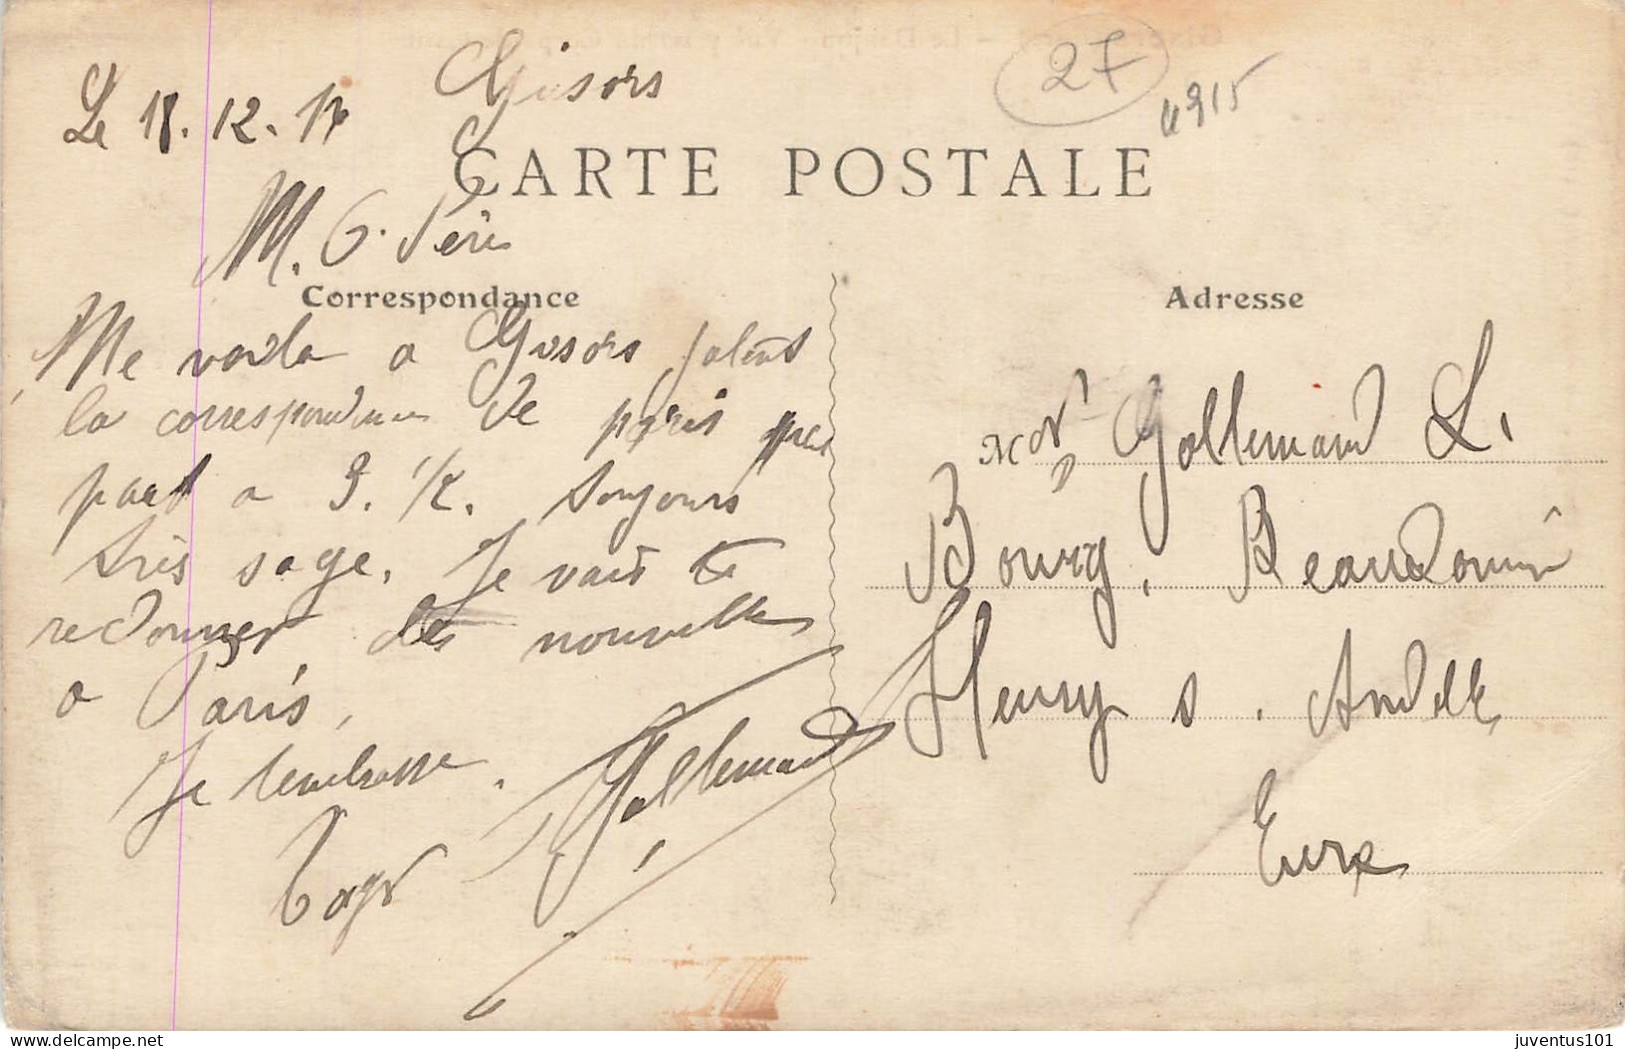 Gisors
Le 18. 12. 17
27
4915
CARTE POSTALE
M. C. Père
Correspondance
Adresse
Me voila a Gisors jatent
la correspondance de paris
part a 9. 1/2. toujours
très sage. Je vais te
redonner des nouvelles
a Paris,
Je tembrasse.
Gallemand
Mor Gallemand L.
Bourg. Beaudouin
Fleury s. Andelle
Eure
juventus101